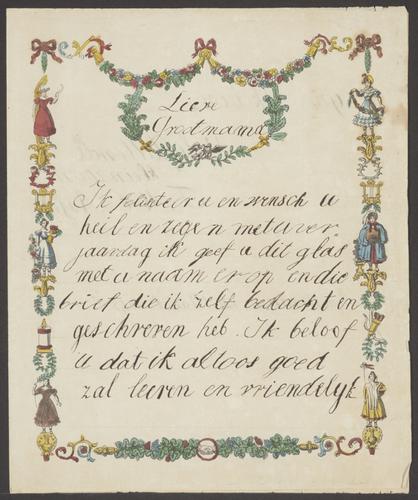 Lieve
Grootmama
Ik feliciteer u en wensch u
heil en zegen met u ver
jaardag ik geef u dit glas
met u naam er op en die
brief die ik zelf bedacht en
geschreven heb. Ik beloof
u dat ik altoos goed
zal leeren en vriendelyk